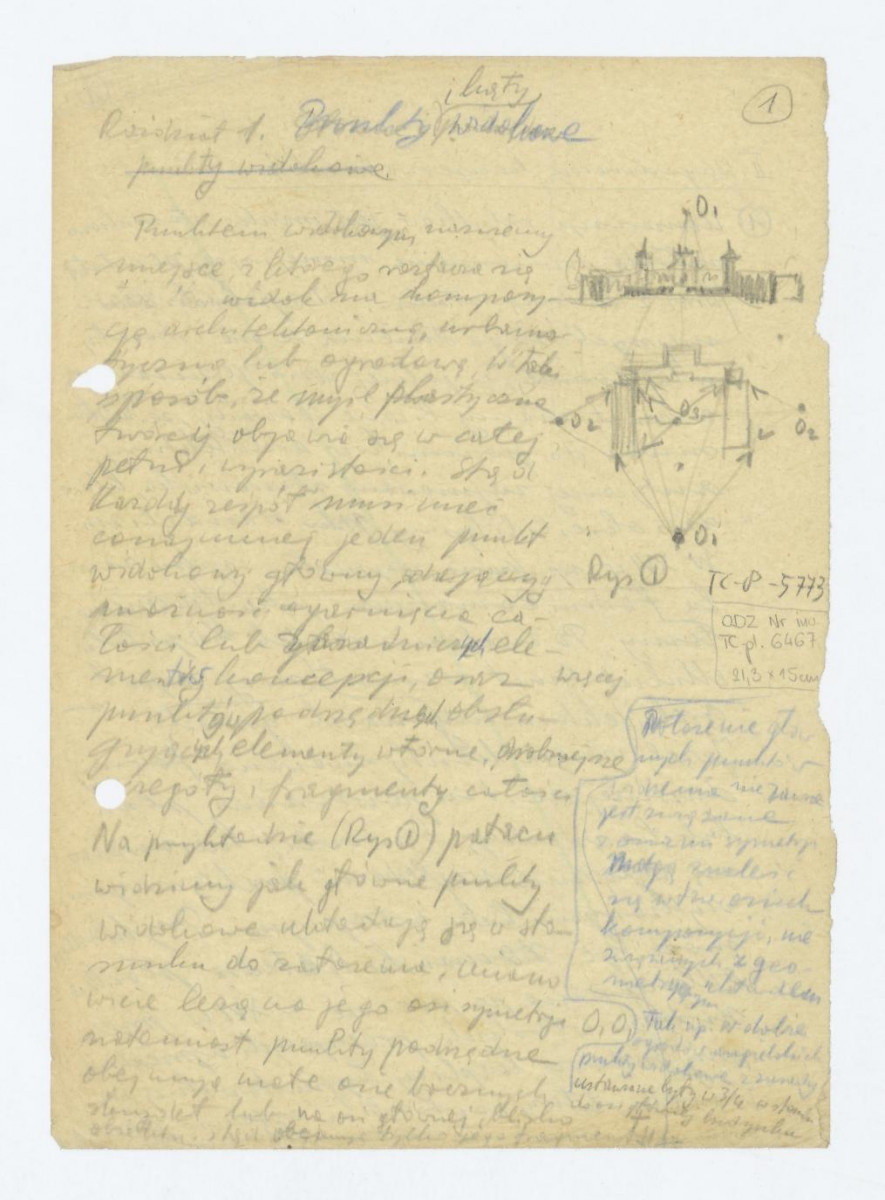 1
i kąty
Rozdział 1. Punkty widokowe
punkty widokowe.
Punktem widokowym nazwiemy
miejsce, z którego roztacza się
widok na kompozy-
cję architektoniczną, urbanis-
tyczną lub ogrodową, w taki
sposób, że myśl plastyczna
twórcy objawia się w całej
pełni i wyrazistości. Stąd
Każdy zespół musi mieć
conajmniej jeden punkt
widokowy główny, dający
możność ogarnięcia ca-
łości lub ele-
mentów koncepcji, oraz więcej
punktów podrzędnych obsłu-
gujących elementy wtórne, drobniejsze
zespoły i fragmenty całości
Na przykładzie (Rys 1) pałacu
widzimy jak główne punkty
widokowe układają się w sto-
sunku do założenia, miano
wicie leżą na jego osi symetrji
natomiast punkty podrzędne
obejmują małe osie bocznych
skrzydeł lub na osi głównej, blisko
obiektu, skąd tylko jego fragment
O1
O2
O3
O2
O1
Rys 1
TC-P-5773
ODZ Nr inw.
TC pl. 6467
21,3 x 15cm
Położenie głów
nych punktów
widzenia nie zawsze
jest związane
z osiami symetrji
Mogą znaleźć
się w tzw. osiach
kompozycji, nie
związanych z geo-
metrycznym układem
O1 O1 Tak np. w dobie
ogrodów angielskich
punkty widokowe
ustawione były w 3/4 w stosunku
do osi
z budynku